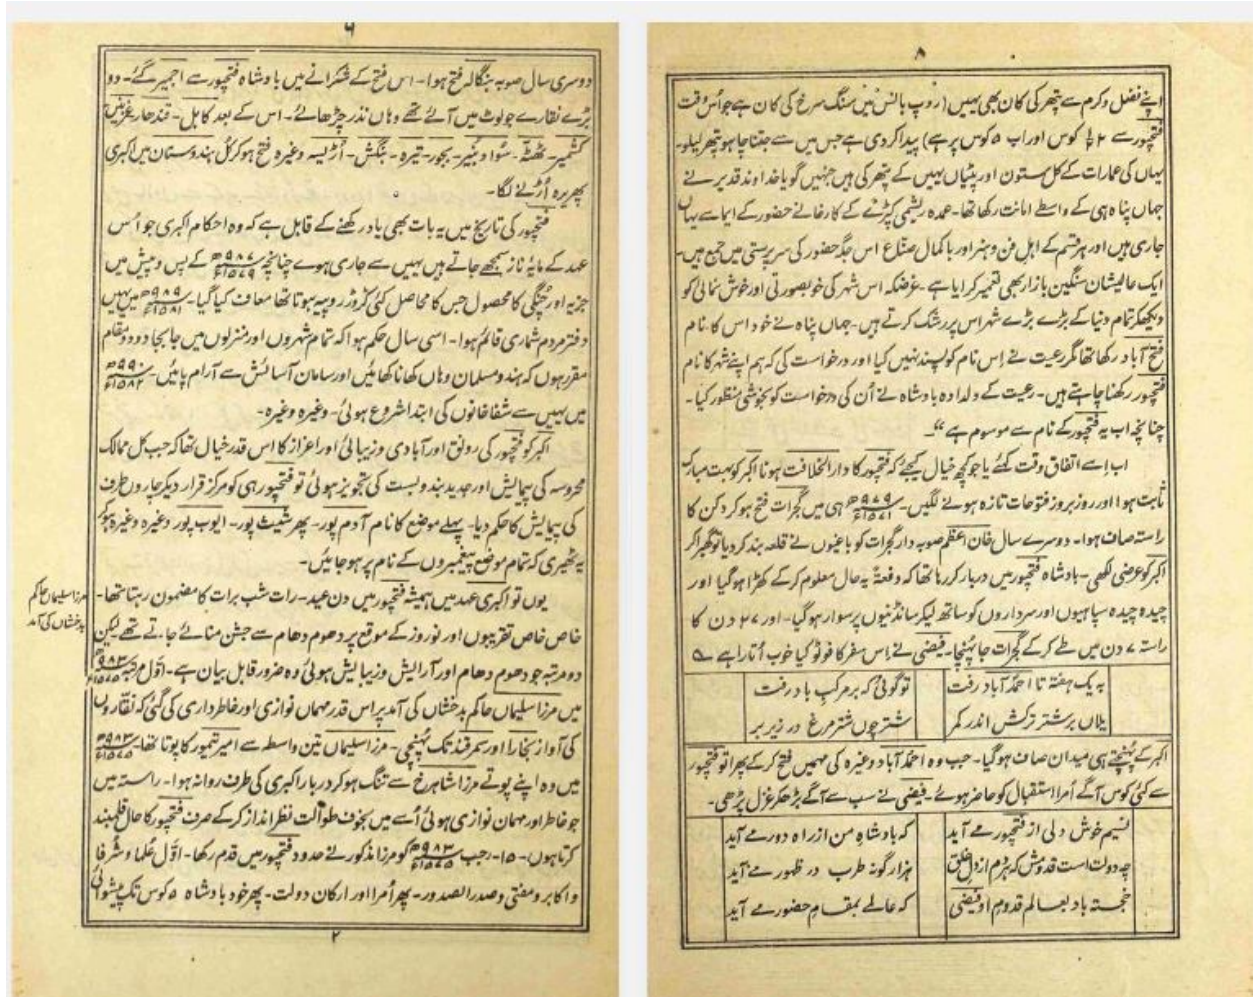 ۸
اپنے فضل وکرم سے پتھر کی کان بھی یہیں (روپ بانس میں سنگ سرخ کی کان ہے جو اُس وقت
فتحپور سے کوس اور اب ۵ کوس پر ہے) پیدا کردی ہے جس میں سے جتنا چاہو پتھر لیلو۔
یہاں کی عمارات کے کل ستون اور پٹیاں یہیں کے پتھر کی ہیں جنہیں گویا خداوند قدیر نے
جہاں پناہ ہی کے واسطے امانت رکھا تھا۔ عمدہ ریشمی کپڑے کے کارخانے حضور کے ایما سے یہاں
جاری ہیں اور ہر قسم کے اہل فن وہنر اور باکمال صنّاع اس جگہ حضور کی سرپرستی میں جمع ہیں۔
ایک عالیشان سنگین بازار بھی تعمیر کرایا ہے۔ غرضکہ اس شہر کی خوبصورتی اور خوش نمائی کو
دیکھکر تمام دنیا کے بڑے بڑے شہر اس پر رشک کرتے ہیں۔ جہاں پناہ نے خود اس کا نام
فتح آباد رکھا تھا مگر رعیت نے اِس نام کو پسند نہیں کیا اور درخواست کی کہ ہم اپنے شہر کا نام
فتحپور رکھنا چاہتے ہیں۔ رعیت کے دلدادہ بادشاہ نے اُن کی درخواست کو بخوشی منظور کیا۔
چنانچہ اب یہ فتحپور کے نام سے موسوم ہے‘‘۔
اب اِسے اتفاق وقت کہئے یا جو کچھ خیال کیجئے کہ فتحپور کا دارالخلافت ہونا اکبر کو بہت مبارک
ثابت ہوا اور روز بروز فتوحات تازہ ہونے لگیں۔ ۹۷۹ھ ۱۵۷۱ء ہی میں گجرات فتح ہوکر دکن کا
راستہ صاف ہوا۔ دوسرے سال خان اعظم صوبہ دار گجرات کو باغیوں نے قلعہ بند کردیا تو گھبرا کر
اکبر کو عرضی لکھی۔ بادشاہ فتحپور میں دربار کر رہا تھا کہ دفعۃً یہ حال معلوم کرکے کھڑا ہوگیا اور
چیدہ چیدہ سپاہیوں اور سرداروں کو ساتھ لیکر سانڈنیوں پر سوار ہوگیا۔ اور ۲۷ دن کا
راستہ ۷ دن میں طے کرکے گجرات جا پہنچا۔ فیضی نے اِس سفر کا فوٹو کیا خوب اُتارا ہے
بہ یک ہفتہ تا احمد آباد رفت تو گوئی کہ بر مرکبِ باد رفت
یلاں بر شتر ترکش اندر کمر شتر چوں شتر مرغ در زیر بر
اکبر کے پہنچتے ہی میدان صاف ہوگیا۔ جب وہ احمد آباد وغیرہ کی مہمیں فتح کرکے پھرا تو فتحپور
سے کئی کوس آگے اُمرا استقبال کو حاضر ہوئے۔ فیضی نے سب سے آگے بڑھکر غزل پڑھی۔
نسیم خوش دلی از فتحپور مے آید کہ بادشاہِ من از راہ دور مے آید
چہ دولت است قدومش کہ ہر دم از دلِ خلق ہزار گونہ طرب در ظہور مے آید
خجستہ باد بعالم قدوم او فیضی کہ عالمے بمقامِ حضور مے آید
۹
دوسری سال صوبہ بنگالہ فتح ہوا۔ اس فتح کے شکرانے میں بادشاہ فتحپور سے اجمیر گئے۔ دو
بڑے نقارے جو لوٹ میں آئے تھے وہاں نذر چڑھائے۔ اس کے بعد کابل۔ قندھار۔ غزنیں
کشمیر۔ ٹھٹہ۔ سُواد وبُنیر۔ بجور۔ تیرہ۔ بنگش۔ اُڑیسہ وغیرہ فتح ہوکر کُل ہندوستان میں اکبری
پھریرہ اُڑنے لگا۔
فتحپور کی تاریخ میں یہ بات بھی یاد رکھنے کے قابل ہے کہ وہ احکام اکبری جو اُس
عہد کے مایۂ ناز سمجھے جاتے ہیں یہیں سے جاری ہوے چنانچہ ۹۸۷ھ ۱۵۷۹ء کے پس وپیش میں
جزیہ اور چُنگی کا محصول جس کا محاصل کئی کروڑ روپیہ ہوتا تھا معاف کیا گیا۔ ۹۸۹ھ ۱۵۸۱ء میں یہیں
دفتر مردم شماری قائم ہوا۔ اسی سال حکم ہوا کہ تمام شہروں اور منزلوں میں جابجا دو دو مقام
مقرر ہوں کہ ہندو مسلمان وہاں کھانا کھائیں اور سامان آسائش سے آرام پائیں۔ ۹۹۰ھ ۱۵۸۲ء
میں یہیں سے شفاخانوں کی ابتدا شروع ہوئی۔ وغیرہ وغیرہ۔
اکبر کو فتحپور کی رونق اور آبادی وزیبائی اور اعزاز کا اس قدر خیال تھا کہ جب کل ممالک
محروسہ کی پیمایش اور جدید بندوبست کی تجویز ہوئی تو فتحپور ہی کو مرکز قرار دیکر چاروں طرف
کی پیمایش کا حکم دیا۔ پہلے موضع کا نام آدم پور۔ پھر شیث پور۔ ایوب پور وغیرہ وغیرہ ہوکر
یہ ٹھیری کہ تمام موضع پیغمبروں کے نام پر ہو جائیں۔
یوں تو اکبری عہد میں ہمیشہ فتحپور میں دن عید۔ رات شب برات کا مضمون رہتا تھا۔
مرزا سلیماں حاکم
بدخشاں کی آمد
خاص خاص تقریبوں اور نوروز کے موقع پر دھوم دھام سے جشن منائے جاتے تھے لیکن
دو مرتبہ جو دھوم دھام اور آرایش وزیبایش ہوئی وہ ضرور قابل بیان ہے۔ اوّل مرتبہ ۹۸۳ھ ۱۵۷۵ء
میں مرزا سلیماں حاکم بدخشاں کی آمد پر اس قدر مہماں نوازی اور خاطرداری کی گئی کہ نقاروں
کی آواز بخارا اور سمرقند تک پہنچی۔ مرزا سلیماں تین واسطہ سے امیر تیمور کا پوتا تھا۔ ۹۸۳ھ ۱۵۷۵ء
میں وہ اپنے پوتے مرزا شاہرخ سے تنگ ہوکر دربار اکبری کی طرف روانہ ہوا۔ راستہ میں
جو خاطر اور مہمان نوازی ہوئی اُسے میں بخوف طوالت نظر انداز کرکے صرف فتحپور کا حال قلمبند
کرتا ہوں۔ ۱۵۔ رجب ۹۸۳ھ ۱۵۷۵ء کو مرزا مذکور نے حدود فتحپور میں قدم رکھا۔ اوّل علما وشرفا
واکابر ومفتی وصدر الصدور۔ پھر اُمرا اور ارکان دولت۔ پھر خود بادشاہ ۵ کوس تک پیشوائی
۲